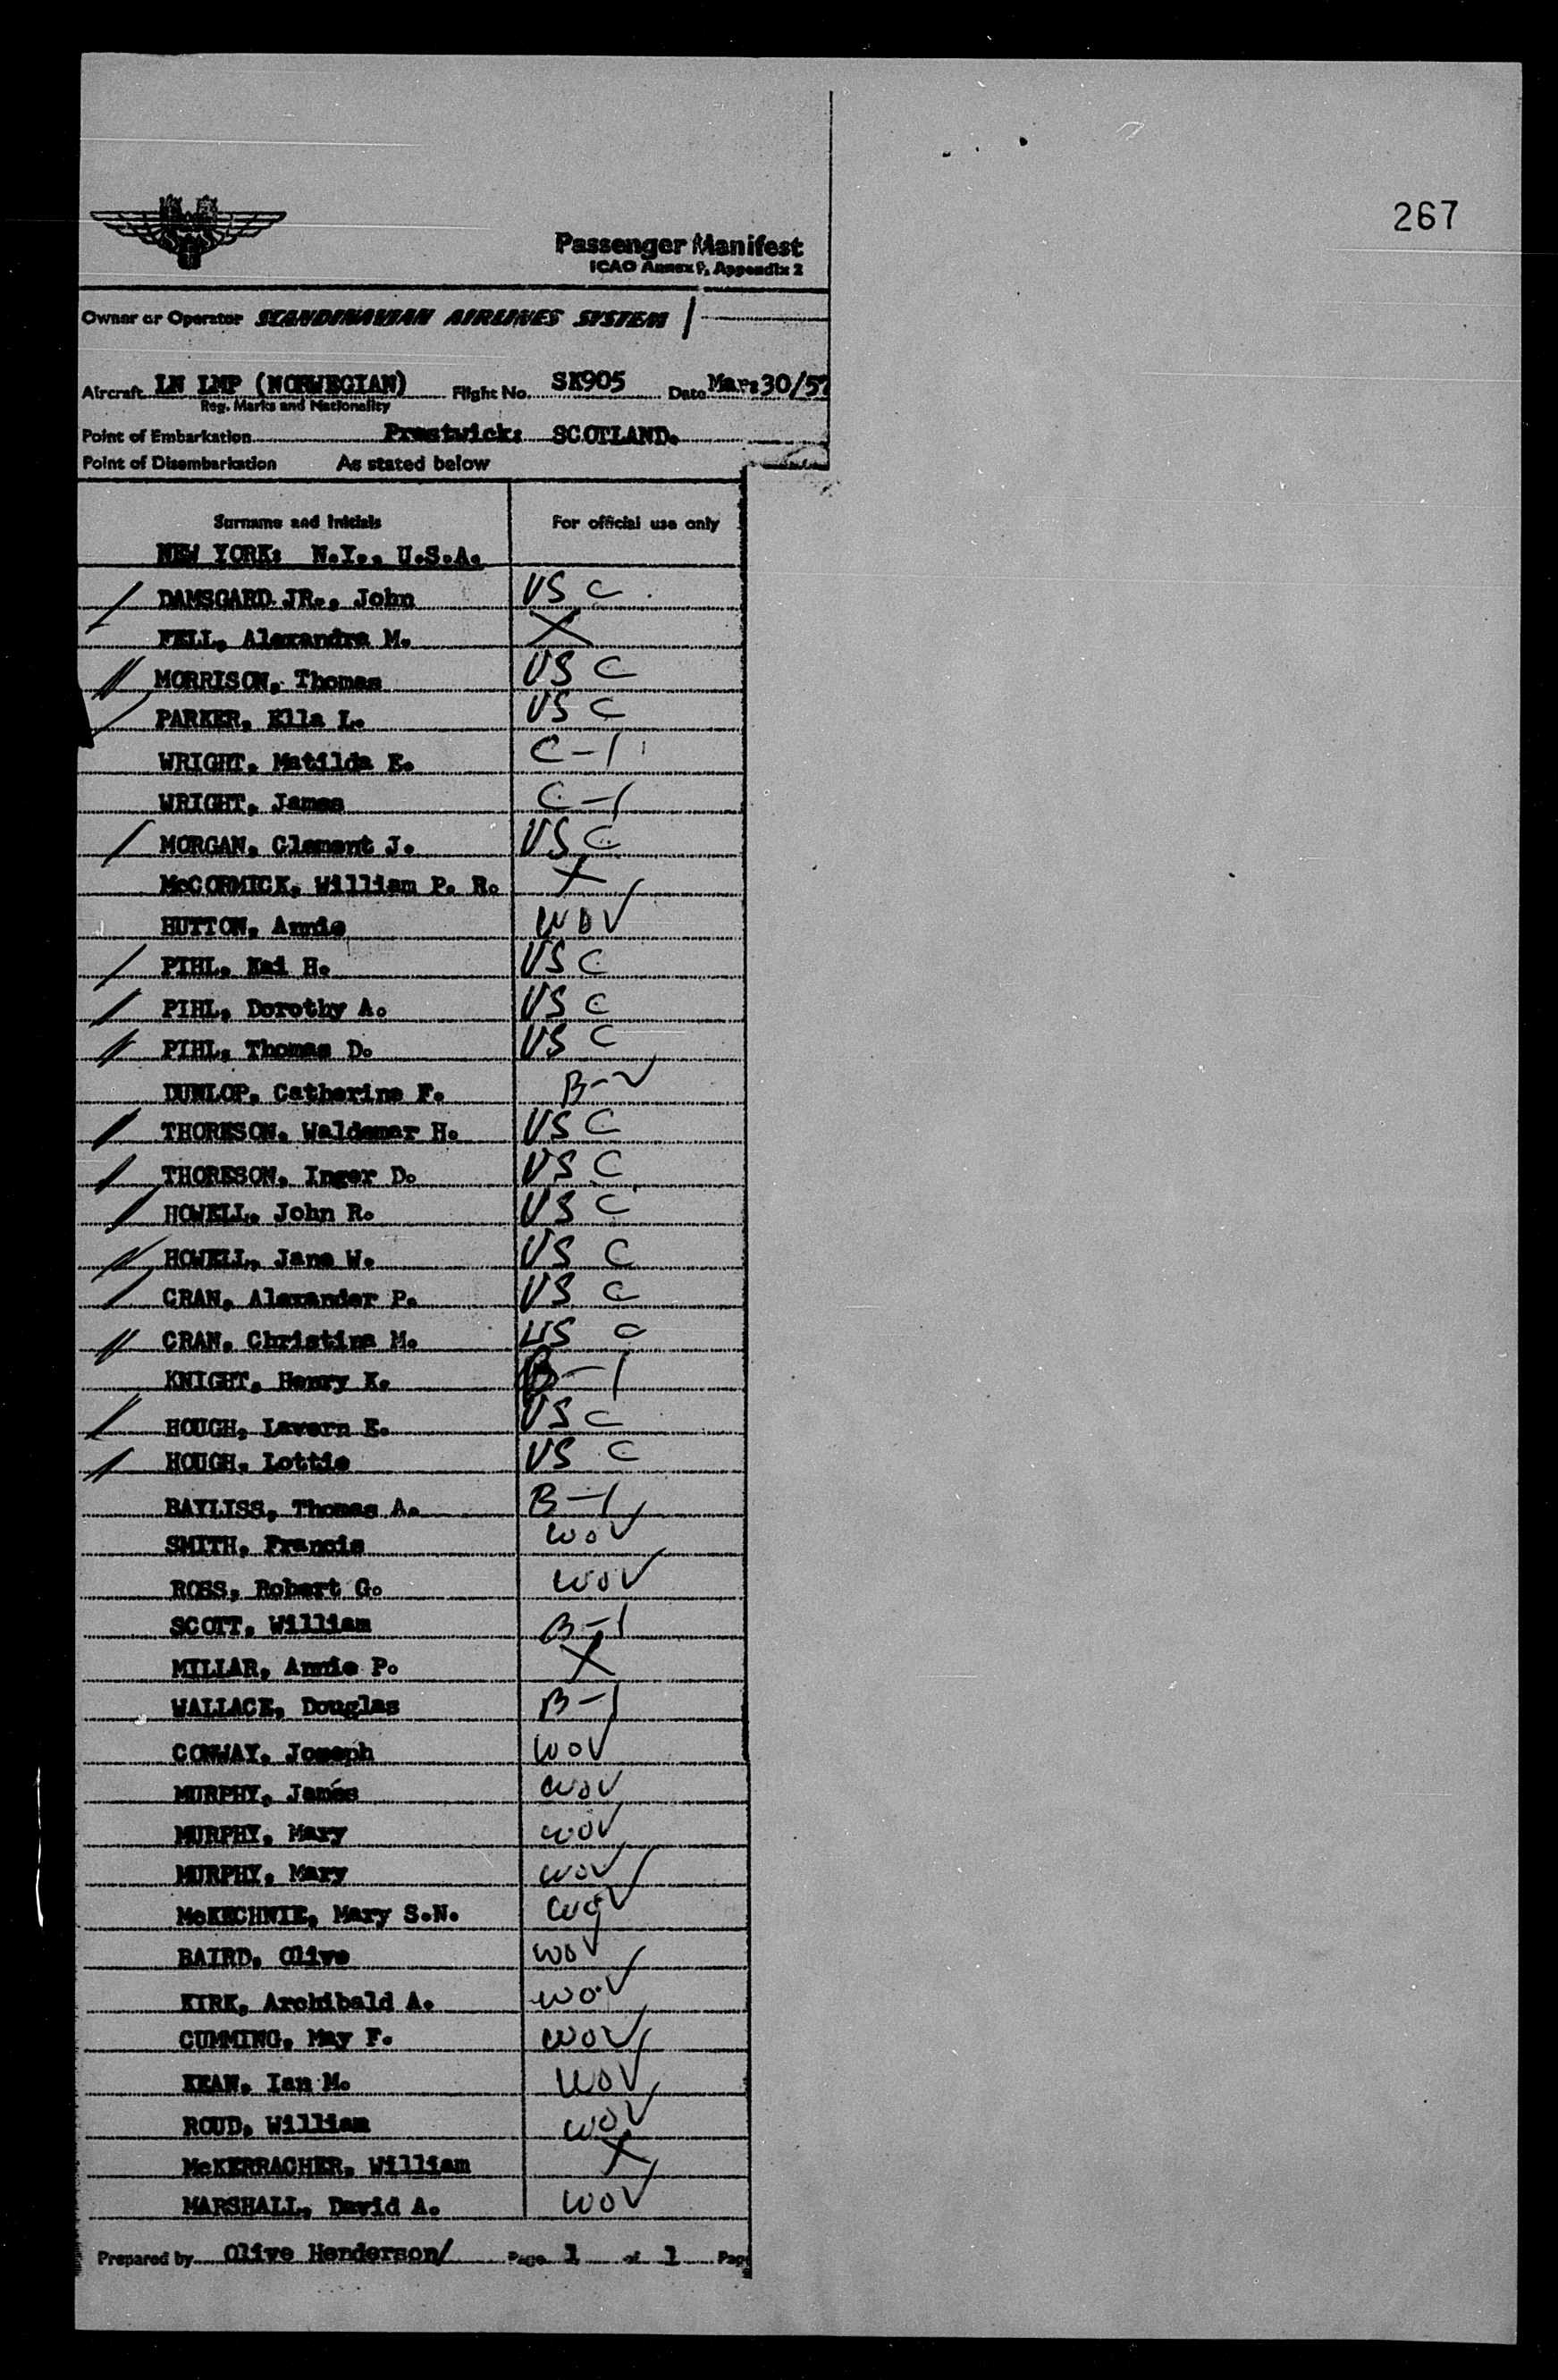 267
Passenger Manifest
ICAO Annex 9, Appendix 2
Owner or Operator SCANDINAVIAN AIRLINES SYSTEM
Aircraft LN LMP (NORWEGIAN) Flight No. SK905 Date Mar: 30/57
Reg. Marks and Nationality
Point of Embarkation Prestwick: SCOTLAND.
Point of Disembarkation As stated below
Surname and Initials For official use only
NEW YORK: N.Y., U.S.A.
DAMSGARD JR., John VS C
FELL, Alexandra M. X
MORRISON, Thomas VS C
PARKER, Ella L. VS C
WRIGHT, Matilda E. C-1
WRIGHT, James C-1
MORGAN, Clement J. VS C
McCORMICK, William P. R. X
HUTTON, Annie WOV
PIHL, Kai H. VS C
PIHL, Dorothy A. VS C
PIHL, Thomas D. VS C
DUNLOP, Catherine F. B-2
THORESON, Waldemar H. VS C
THORESON, Inger D. VS C
HOWELL, John R. VS C
HOWELL, Jane W. VS C
CRAN, Alexander P. VS C
CRAN, Christina M. US C
KNIGHT, Henry K. B-1
HOUGH, Lavern E. VS C
HOUGH, Lottie VS C
BAYLISS, Thomas A. B-1
SMITH, Francis WOV
ROSS, Robert G. WOV
SCOTT, William B-1
MILLAR, Annie P. X
WALLACE, Douglas B-1
CONWAY, Joseph WOV
MURPHY, James WOV
MURPHY, Mary WOV
MURPHY, Mary WOV
McKECHNIE, Mary S.N. WOV
BAIRD, Olive WOV
KIRK, Archibald A. WOV
CUMMING, May F. WOV
KEAN, Ian M. WOV
ROUD, William WOV
McKERRACHER, William X
MARSHALL, David A. WOV
Prepared by Olive Henderson/ Page 1 of 1 Pag